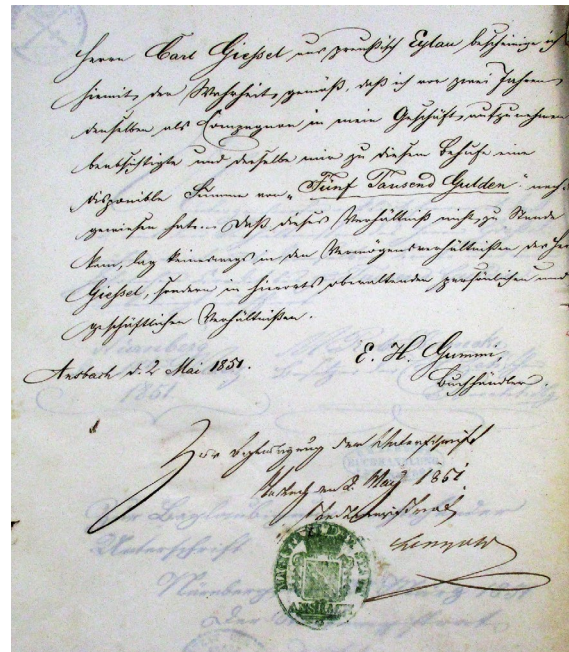 Herrn Carl Gießel aus preußisch Eylau bescheinige ich
hiemit, der Wahrheit gemäß, daß ich vor zwei Jahren
denselben als Compagnon in mein Geschäft aufzunehmen
beabsichtigte und derselbe mir zu diesem Behufe eine
disponible Summe von „Fünf Tausend Gulden" nach
gewiesen hat. Daß dieses Verhältniß nicht zu Stande
kam, lag keineswegs in den Vermögensverhältnißen des
Gießel, sondern in hierorts obwaltenden persönlichen und
geschäftlichen Verhältnißen.
Ansbach d. 2 Mai 1851.
E. H. Gummi,
Buchhändler.
Zur Beglaubigung der Unterschrift
Ansbach am 2. Mai 1851.
Stadtmagistrat
ANSBACH
Unterschrift
Nürnberg
1851